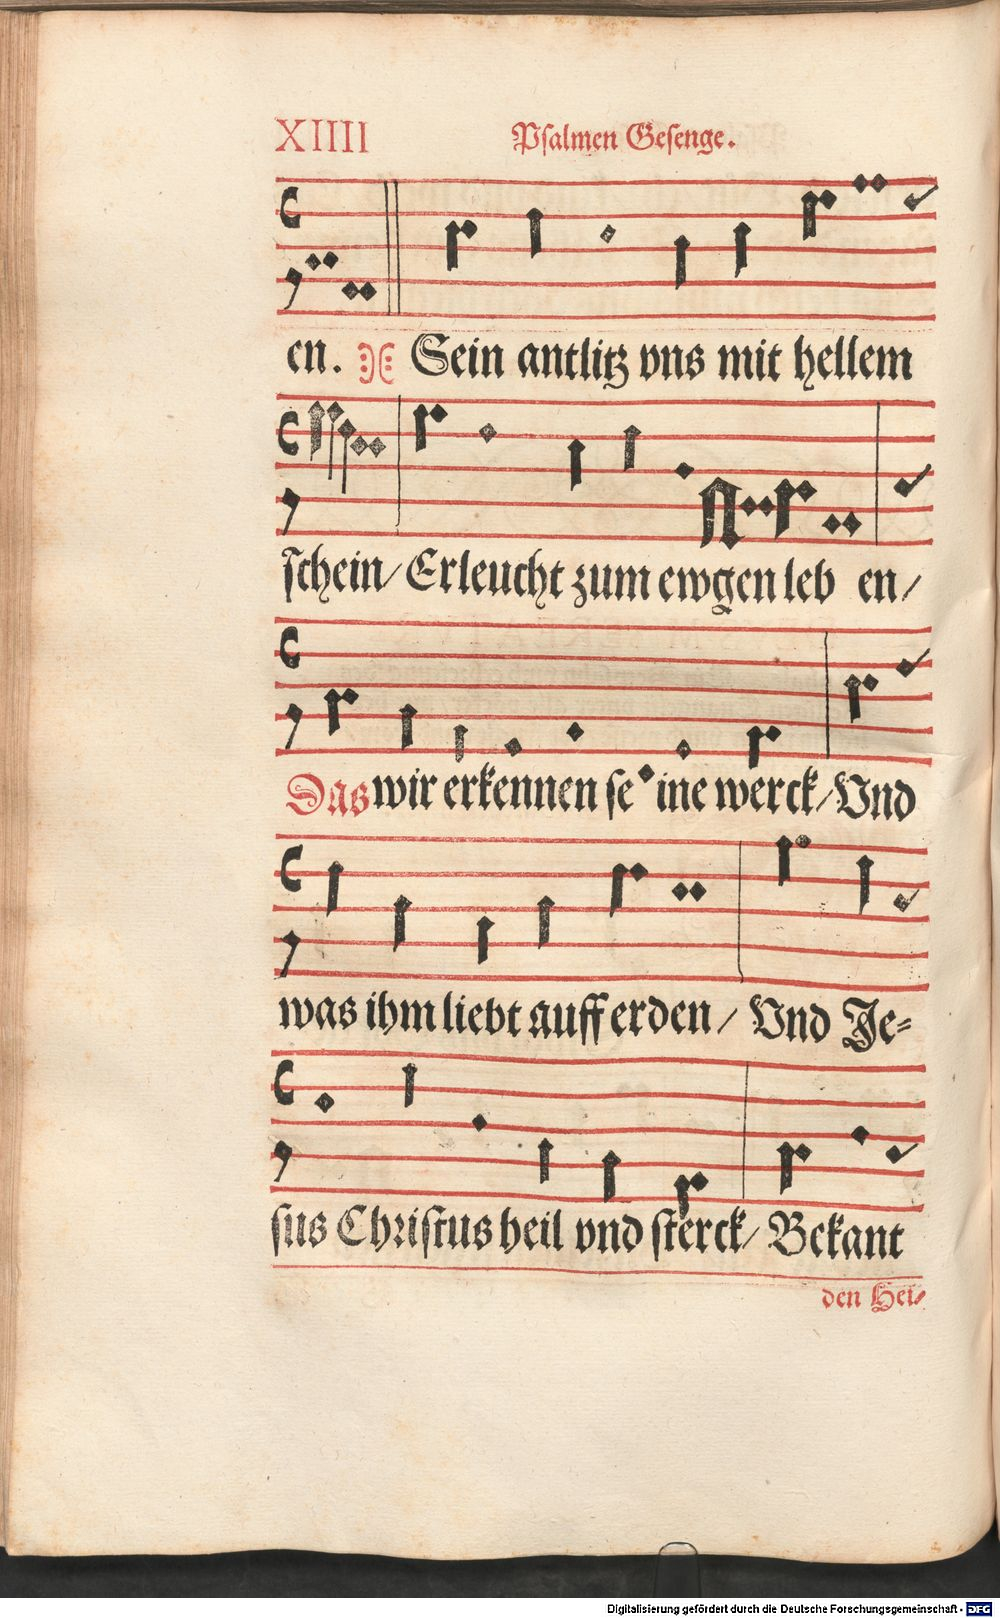 XIIII Psalmen Gesenge.
en. Sein antlitz vns mit hellem
schein/ Erleucht zum ewgen leb en/
Das wir erkennen se ine werck/ Vnd
was ihm liebt auff erden/ Vnd Je⸗
sus Christus heil vnd sterck/ Bekant
den Hei⸗
Digitalisierung gefördert durch die Deutsche Forschungsgemeinschaft - DFG